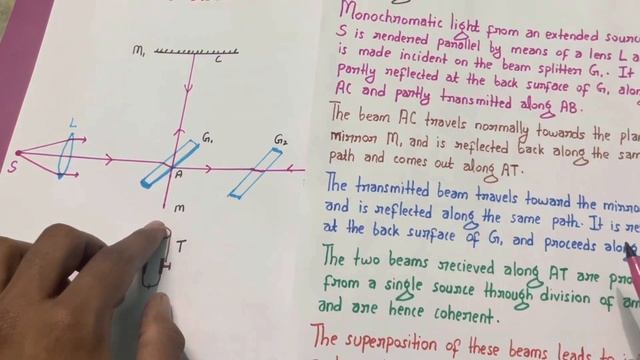 M₁
C
L
G₁
G₂
S
A
M
T
Monochromatic light from an extended source
S is rendered parallel by means of a lens L a
is made incident on the beam splitter G₁. It
partly reflected at the back surface of G₁, alon
AC and partly transmitted along AB.
The beam AC travels normally towards the plan
mirror M₁ and is reflected back along the sam
path and comes out along AT.
The transmitted beam travels toward the mirro
and is reflected along the same path. It is re
at the back surface of G₁ and proceeds along
The two beams recieved along AT are pro
from a single source through division of am
and are hence coherent.
The superposition of these beams leads to